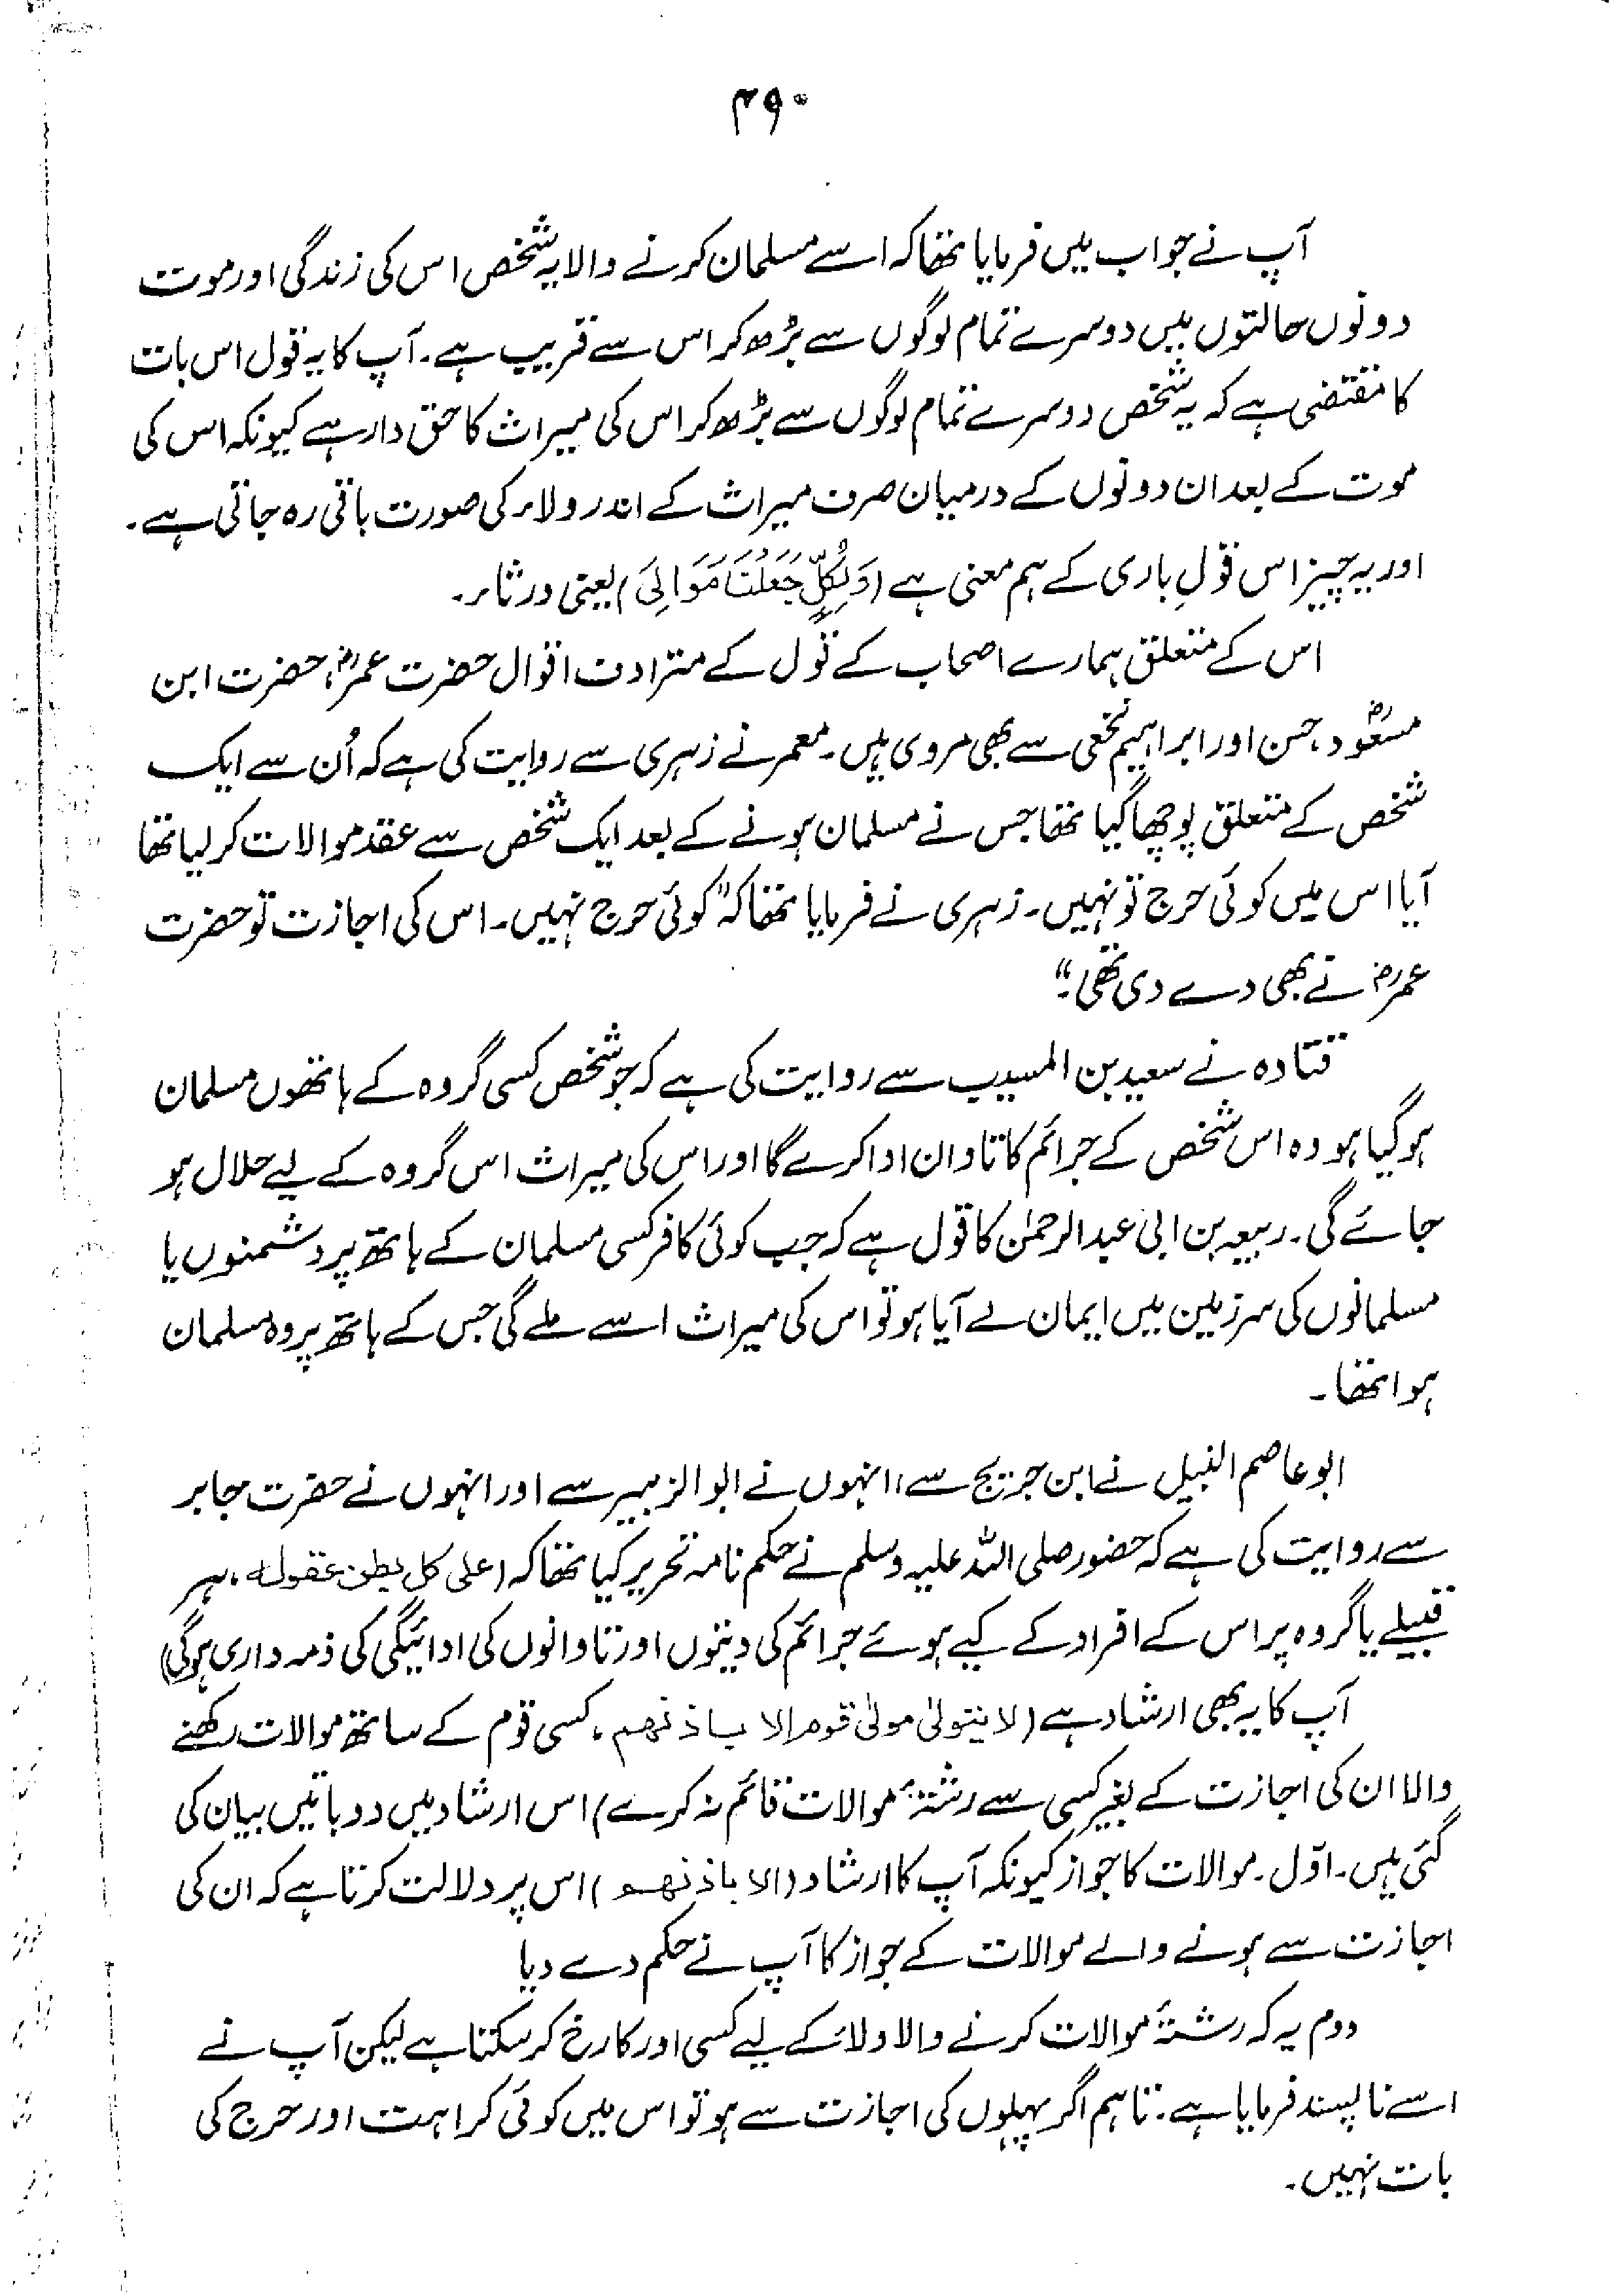 ۴۹۰
آپ نے جواب میں فرمایا تھا کہ اسے مسلمان کرنے والا یہ شخص اس کی زندگی اور موت
دونوں حالتوں میں دوسرے تمام لوگوں سے بڑھ کر اس سے قریب ہے۔ آپ کا یہ قول اس بات
کا مقتضی ہے کہ یہ شخص دوسرے تمام لوگوں سے بڑھ کر اس کی میراث کا حق دار ہے کیونکہ اس کی
موت کے بعد ان دونوں کے درمیان صرف میراث کے اندر ولاء کی صورت باقی رہ جاتی ہے۔
اور یہ چیز اس قولِ باری کے ہم معنی ہے (وَلِكُلٍّ جَعَلْنَا مَوَالِيَ) یعنی ورثاء۔
اس کے متعلق ہمارے اصحاب کے قول کے مترادف اقوال حضرت عمرؓ، حضرت ابن
مسعودؓ، حسن اور ابراہیم نخعی سے بھی مروی ہیں۔ معمر نے زہری سے روایت کی ہے کہ اُن سے ایک
شخص کے متعلق پوچھا گیا تھا جس نے مسلمان ہونے کے بعد ایک شخص سے عقد موالات کر لیا تھا
آیا اس میں کوئی حرج تو نہیں۔ زہری نے فرمایا تھا کہ "کوئی حرج نہیں۔ اس کی اجازت تو حضرت
عمرؓ نے بھی دے دی تھی۔"
قتادہ نے سعید بن المسیب سے روایت کی ہے کہ جو شخص کسی گروہ کے ہاتھوں مسلمان
ہو گیا ہو وہ اس شخص کے جرائم کا تاوان ادا کرے گا اور اس کی میراث اس گروہ کے لیے حلال ہو
جائے گی۔ ربیعہ بن ابی عبدالرحمٰن کا قول ہے کہ جب کوئی کافر کسی مسلمان کے ہاتھ پر دشمنوں یا
مسلمانوں کی سرزمین میں ایمان لے آیا ہو تو اس کی میراث اسے ملے گی جس کے ہاتھ پر وہ مسلمان
ہوا تھا۔
ابو عاصم النبیل نے ابن جریج سے، انہوں نے ابوالزبیر سے اور انہوں نے حضرت جابر
سے روایت کی ہے کہ حضور صلی اللہ علیہ وسلم نے حکم نامہ تحریر کیا تھا کہ (علی کل بطن عقولہ، ہر
قبیلے یا گروہ پر اس کے افراد کے کیے ہوئے جرائم کی دیتوں اور تاوانوں کی ادائیگی کی ذمہ داری ہوگی)
آپ کا یہ بھی ارشاد ہے (لا یتولیٰ مولیٰ قوم الا باذنھم، کسی قوم کے ساتھ موالات رکھنے
والا ان کی اجازت کے بغیر کسی سے رشتۂ موالات قائم نہ کرے) اس ارشاد میں دو باتیں بیان کی
گئی ہیں۔ اوّل۔ موالات کا جواز کیونکہ آپ کا ارشاد (الا باذنھم) اس پر دلالت کرتا ہے کہ ان کی
اجازت سے ہونے والے موالات کے جواز کا آپ نے حکم دے دیا
دوم یہ کہ رشتۂ موالات کرنے والا ولاء کے لیے کسی اور کا رخ کر سکتا ہے لیکن آپ نے
اسے ناپسند فرمایا ہے۔ تاہم اگر پہلوں کی اجازت سے ہو تو اس میں کوئی کراہت اور حرج کی
بات نہیں۔